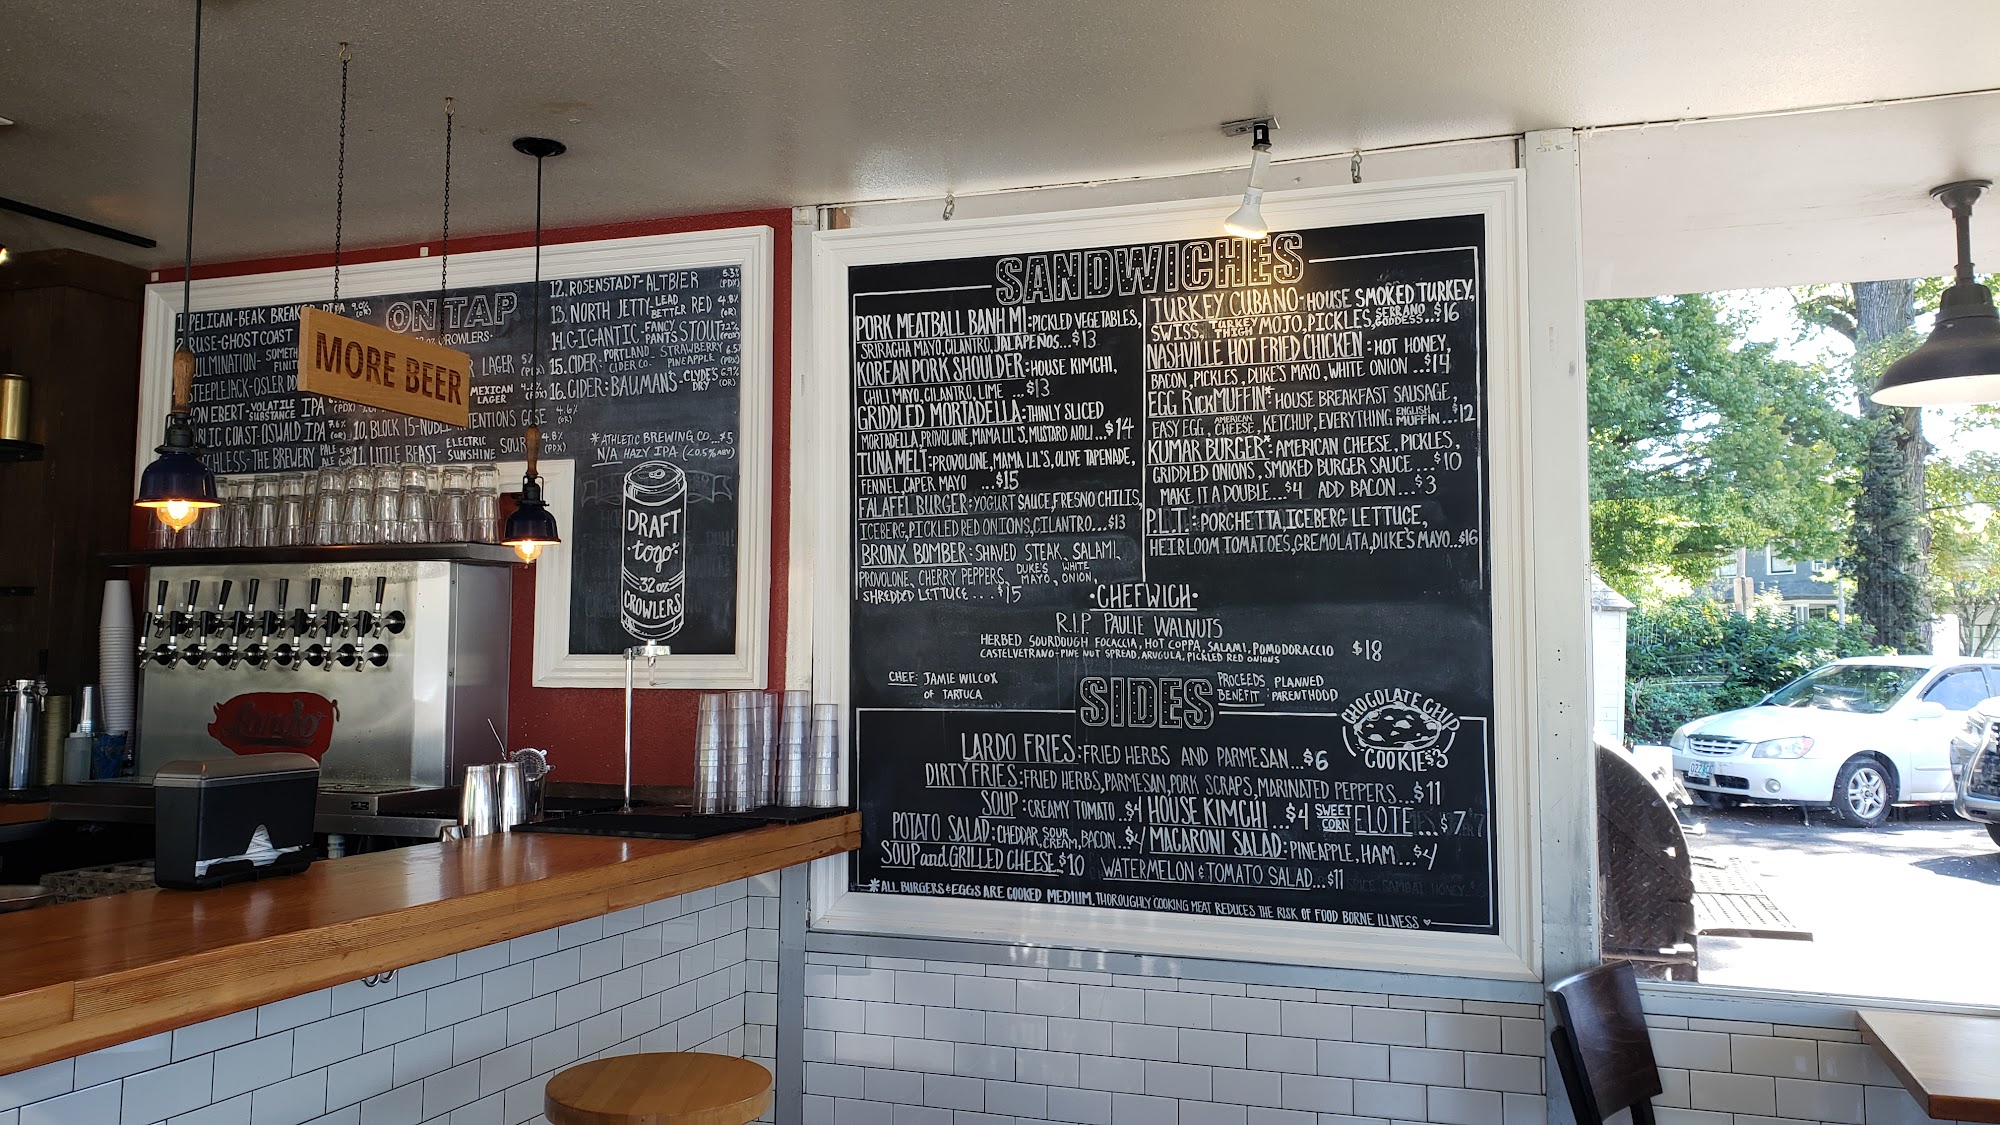 ON TAP
MORE BEER
PELICAN-BEAK BREAKER 9.0%
RUSE-GHOST COAST
CULMINATION-
STEEPLEJACK-OSLER
VON EBERT-VOLATILE SUBSTANCE IPA
COAST-OSWALD IPA 7.6%
THE BREWERY PALE
LAGER
MEXICAN LAGER
10. BLOCK 15- INTENTIONS GOSE 4.6%
11. LITTLE BEAST-ELECTRIC SUNSHINE SOUR 4.8% (PDX)
12. ROSENSTADT-ALTBIER 5.3% (PDX)
13. NORTH JETTY-LEAD BETTER RED 4.8% (OR)
14. GIGANTIC-FANCY PANTS STOUT 7.2%
15. CIDER-PORTLAND CIDER CO.-STRAWBERRY PINEAPPLE 6.5%
16. CIDER:BAUMAN'S-CLYDE'S DRY 6.9% (OR)
*ATHLETIC BREWING CO...$5
N/A HAZY IPA (<0.5% ABV)
DRAFT
togo:
32oz
CROWLERS
SANDWICHES
PORK MEATBALL BANH MI:PICKLED VEGETABLES,
SRIRACHA MAYO,CILANTRO,JALAPEÑOS...$13
KOREAN PORK SHOULDER:HOUSE KIMCHI,
CHILI MAYO,CILANTRO,LIME ...$13
GRIDDLED MORTADELLA:THINLY SLICED
MORTADELLA,PROVOLONE,MAMA LIL'S,MUSTARD AIOLI...$14
TUNA MELT:PROVOLONE,MAMA LIL'S,OLIVE TAPENADE,
FENNEL,CAPER MAYO ...$15
FALAFEL BURGER:YOGURT SAUCE,FRESNO CHILIS,
ICEBERG,PICKLED RED ONIONS,CILANTRO...$13
BRONX BOMBER:SHAVED STEAK, SALAMI,
PROVOLONE, CHERRY PEPPERS, DUKE'S MAYO, WHITE ONION,
SHREDDED LETTUCE...$15
TURKEY CUBANO:HOUSE SMOKED TURKEY,
SWISS, TURKEY THIGH MOJO,PICKLES,SERRANO GODDESS...$16
NASHVILLE HOT FRIED CHICKEN:HOT HONEY,
BACON,PICKLES,DUKE'S MAYO,WHITE ONION...$14
EGG RICKMUFFIN*:HOUSE BREAKFAST SAUSAGE,
EASY EGG, AMERICAN CHEESE, KETCHUP, EVERYTHING ENGLISH MUFFIN...$12
KUMAR BURGER*:AMERICAN CHEESE,PICKLES,
GRIDDLED ONIONS,SMOKED BURGER SAUCE...$10
MAKE IT A DOUBLE...$4 ADD BACON...$3
P.L.T.:PORCHETTA,ICEBERG LETTUCE,
HEIRLOOM TOMATOES,GREMOLATA,DUKE'S MAYO...$16
·CHEFWICH·
R.I.P. PAULIE WALNUTS
HERBED SOURDOUGH FOCACCIA, HOT COPPA, SALAMI, POMODORACCIO $18
CASTELVETRANO-PINE NUT SPREAD, ARUGULA, PICKLED RED ONIONS
CHEF: JAMIE WILCOX
OF TARTUCA
PROCEEDS BENEFIT: PLANNED PARENTHOOD
SIDES
CHOCOLATE CHIP
COOKIE $3
LARDO FRIES:FRIED HERBS AND PARMESAN...$6
DIRTY FRIES:FRIED HERBS,PARMESAN,PORK SCRAPS,MARINATED PEPPERS...$11
SOUP:CREAMY TOMATO...$4 HOUSE KIMCHI...$4 SWEET CORN ELOTE...$7
POTATO SALAD:CHEDDAR, SOUR CREAM,BACON...$4 MACARONI SALAD:PINEAPPLE,HAM...$4
SOUP and GRILLED CHEESE...$10 WATERMELON & TOMATO SALAD...$11
*ALL BURGERS & EGGS ARE COOKED MEDIUM. THOROUGHLY COOKING MEAT REDUCES THE RISK OF FOOD BORNE ILLNESS
Lardo